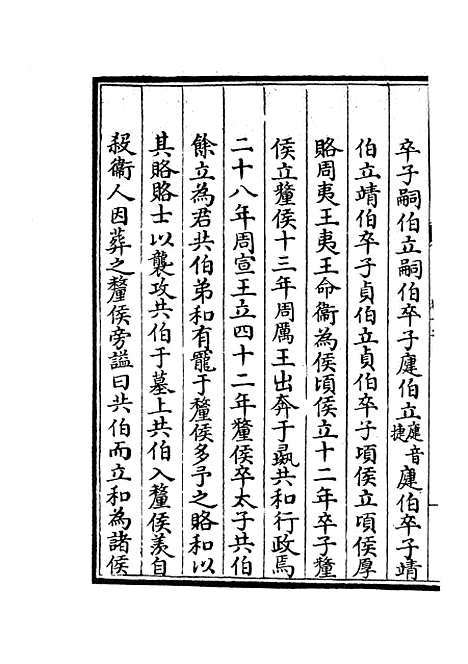 卒子嗣伯立嗣伯卒子疌伯立疌音捷疌伯卒子靖
伯立靖伯卒子貞伯立貞伯卒子頃侯立頃侯厚
賂周夷王夷王命衞為侯頃侯立十二年卒子釐
侯立釐侯十三年周厲王出奔于彘共和行政焉
二十八年周宣王立四十二年釐侯卒太子共伯
餘立為君共伯弟和有寵于釐侯多予之賂和以
其賂賂士以襲攻共伯于墓上共伯入釐侯羨自
殺衞人因葬之釐侯旁謚曰共伯而立和為諸侯